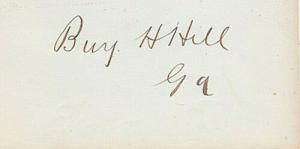 Benj. H Hill
Ga